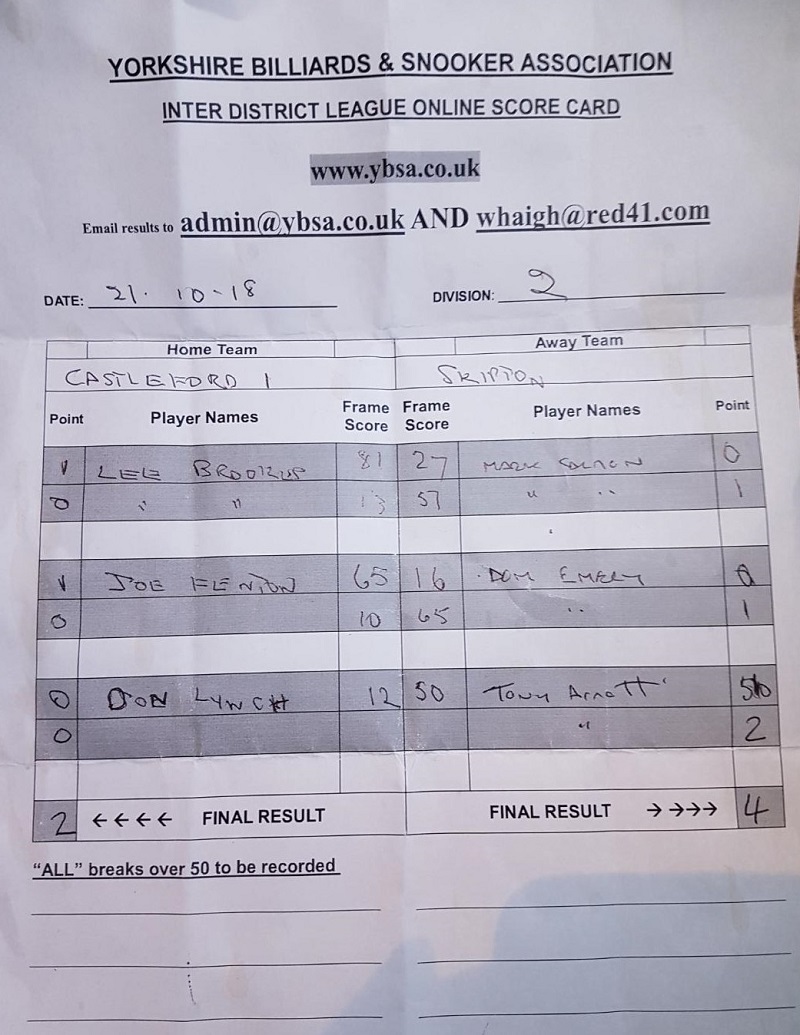 YORKSHIRE BILLIARDS & SNOOKER ASSOCIATION
INTER DISTRICT LEAGUE ONLINE SCORE CARD
www.ybsa.co.uk
Email results to admin@ybsa.co.uk AND whaigh@red41.com
DATE: 21. 10-18 DIVISION: 2
Home Team Away Team
CASTLEFORD 1 SKIPTON
Point Player Names Frame Score Frame Score Player Names Point
1 LEE 81 27 MARK 0
0 " " 13 57 " " 1
1 JOE FENTON 65 16 DOM EMERY 0
0 10 65 " 1
0 DON LYNCH 12 50 Tony Arnott
0 " 2
2 ←←←← FINAL RESULT FINAL RESULT →→→→ 4
"ALL" breaks over 50 to be recorded